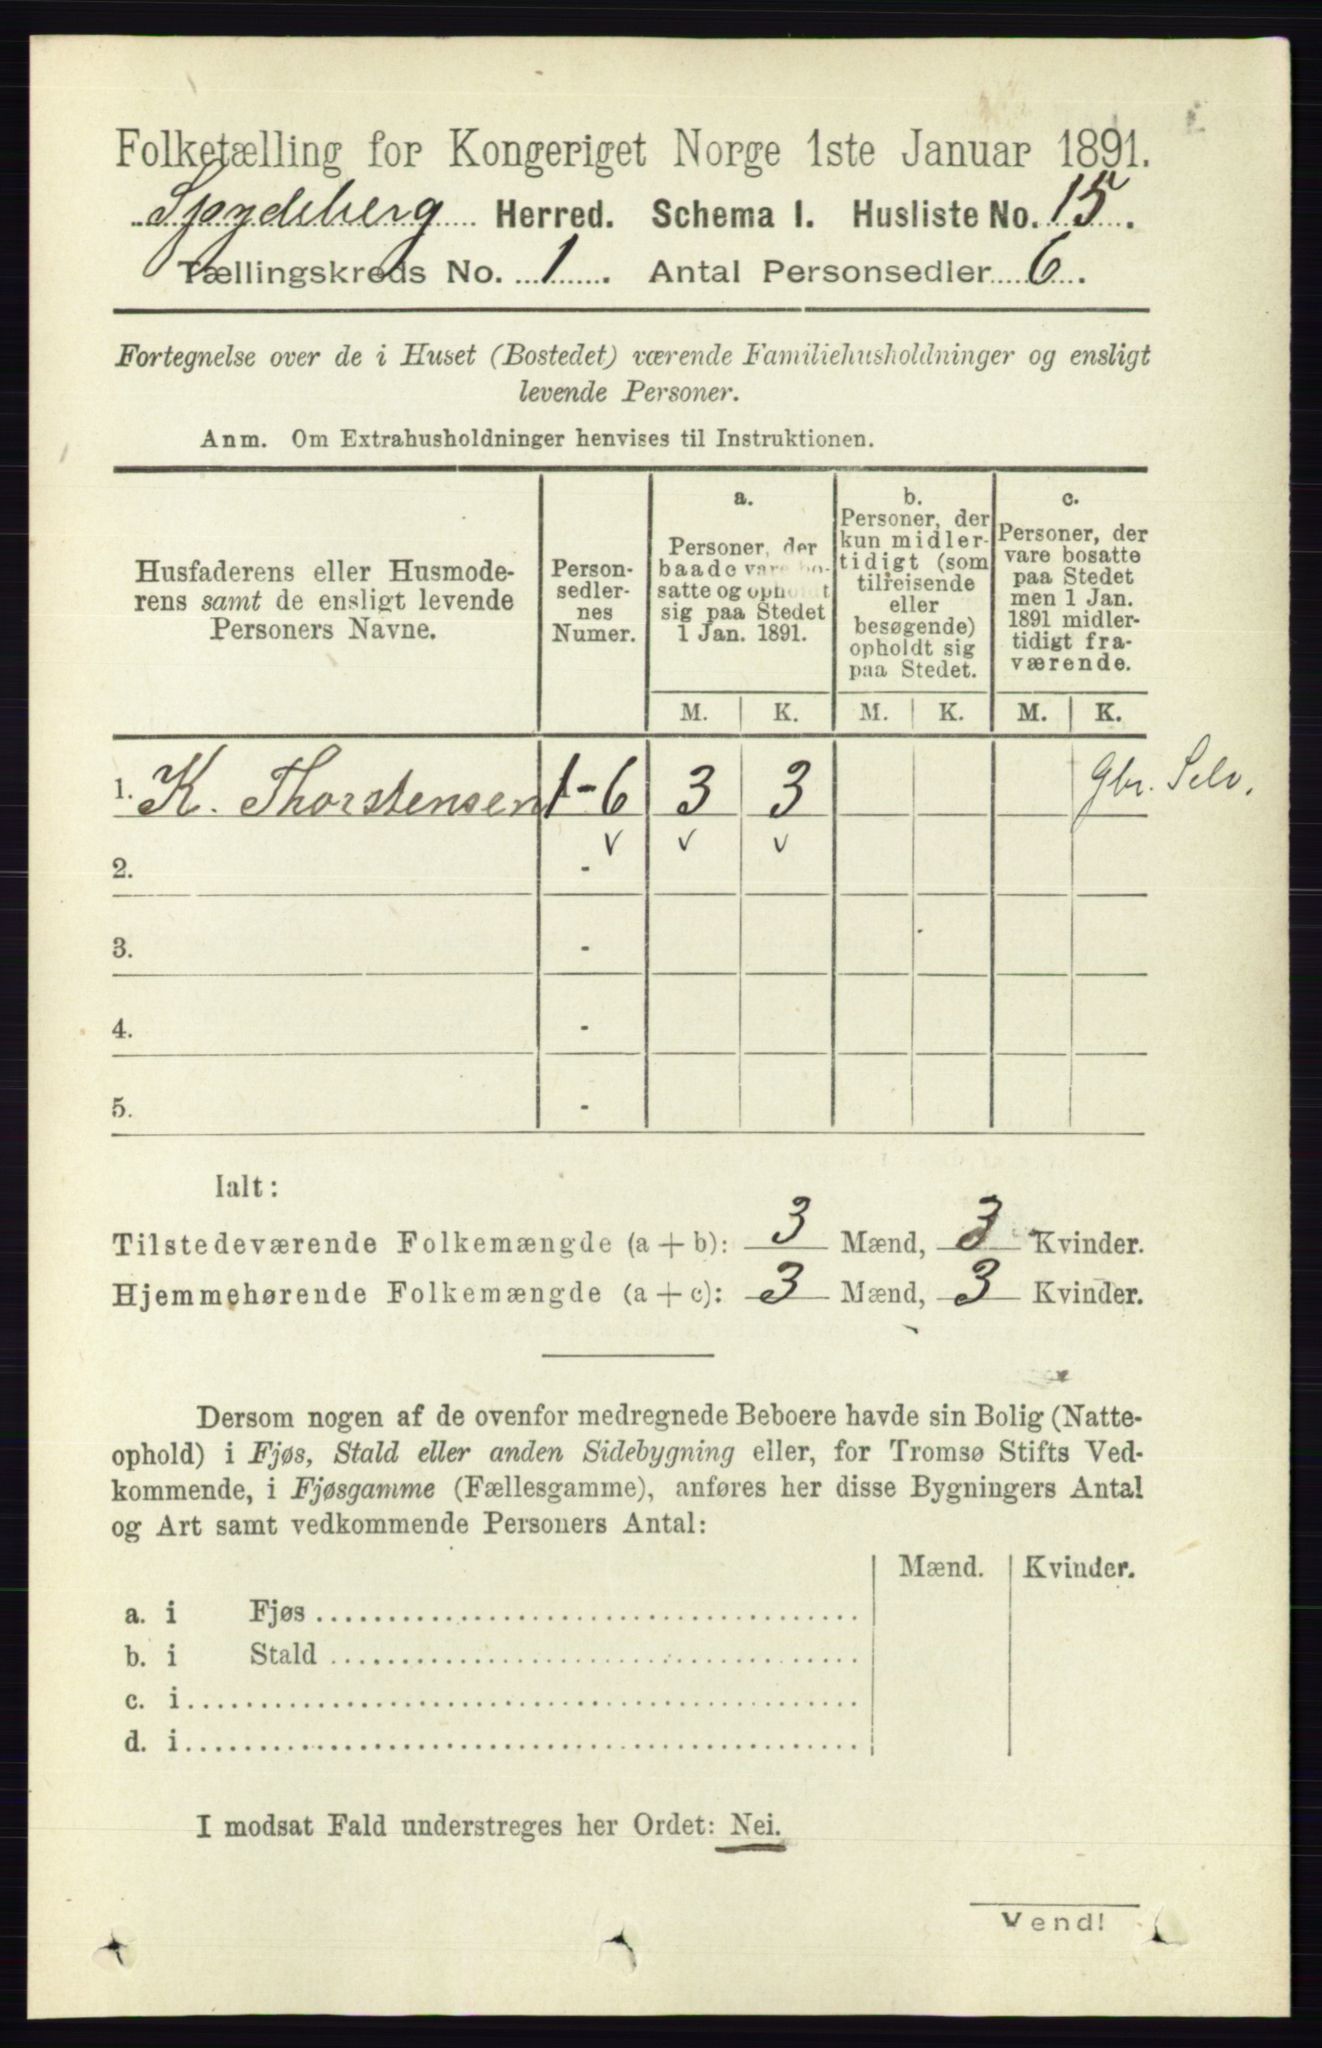 Folketælling for Kongeriget Norge 1ste Januar 1891.
Spydeberg Herred. Schema I. Husliste No. 15.
Tællingskreds No. 1. Antal Personsedler 6.
Fortegnelse over de i Huset (Bostedet) værende Familiehusholdninger og ensligt
levende Personer.
Anm. Om Extrahusholdninger henvises til Instruktionen.
Husfaderens eller Husmode-
rens samt de ensligt levende
Personers Navne.
Person-
sedler-
nes
Numer.
a.
Personer, der
baade vare bo-
satte og opholdt
sig paa Stedet
1 Jan. 1891.
b.
Personer, der
kun midler-
tidigt (som
tilreisende
eller
besøgende)
opholdt sig
paa Stedet.
c.
Personer, der
vare bosatte
paa Stedet
men 1 Jan.
1891 midler-
tidigt fra-
værende.
M. K. M. K. M. K.
1. K. Thorstensen 1-6 3 3 Gbr. Selv.
v v v
2. -
3. -
4. -
5. -
Ialt:
Tilstedeværende Folkemængde (a + b): 3 Mænd, 3 Kvinder.
Hjemmehørende Folkemængde (a + c): 3 Mænd, 3 Kvinder.
Dersom nogen af de ovenfor medregnede Beboere havde sin Bolig (Natte-
ophold) i Fjøs, Stald eller anden Sidebygning eller, for Tromsø Stifts Ved-
kommende, i Fjøsgamme (Fællesgamme), anføres her disse Bygningers Antal
og Art samt vedkommende Personers Antal:
Mænd. Kvinder.
a. i Fjøs
b. i Stald
c. i
d. i
I modsat Fald understreges her Ordet: Nei.
Vend!